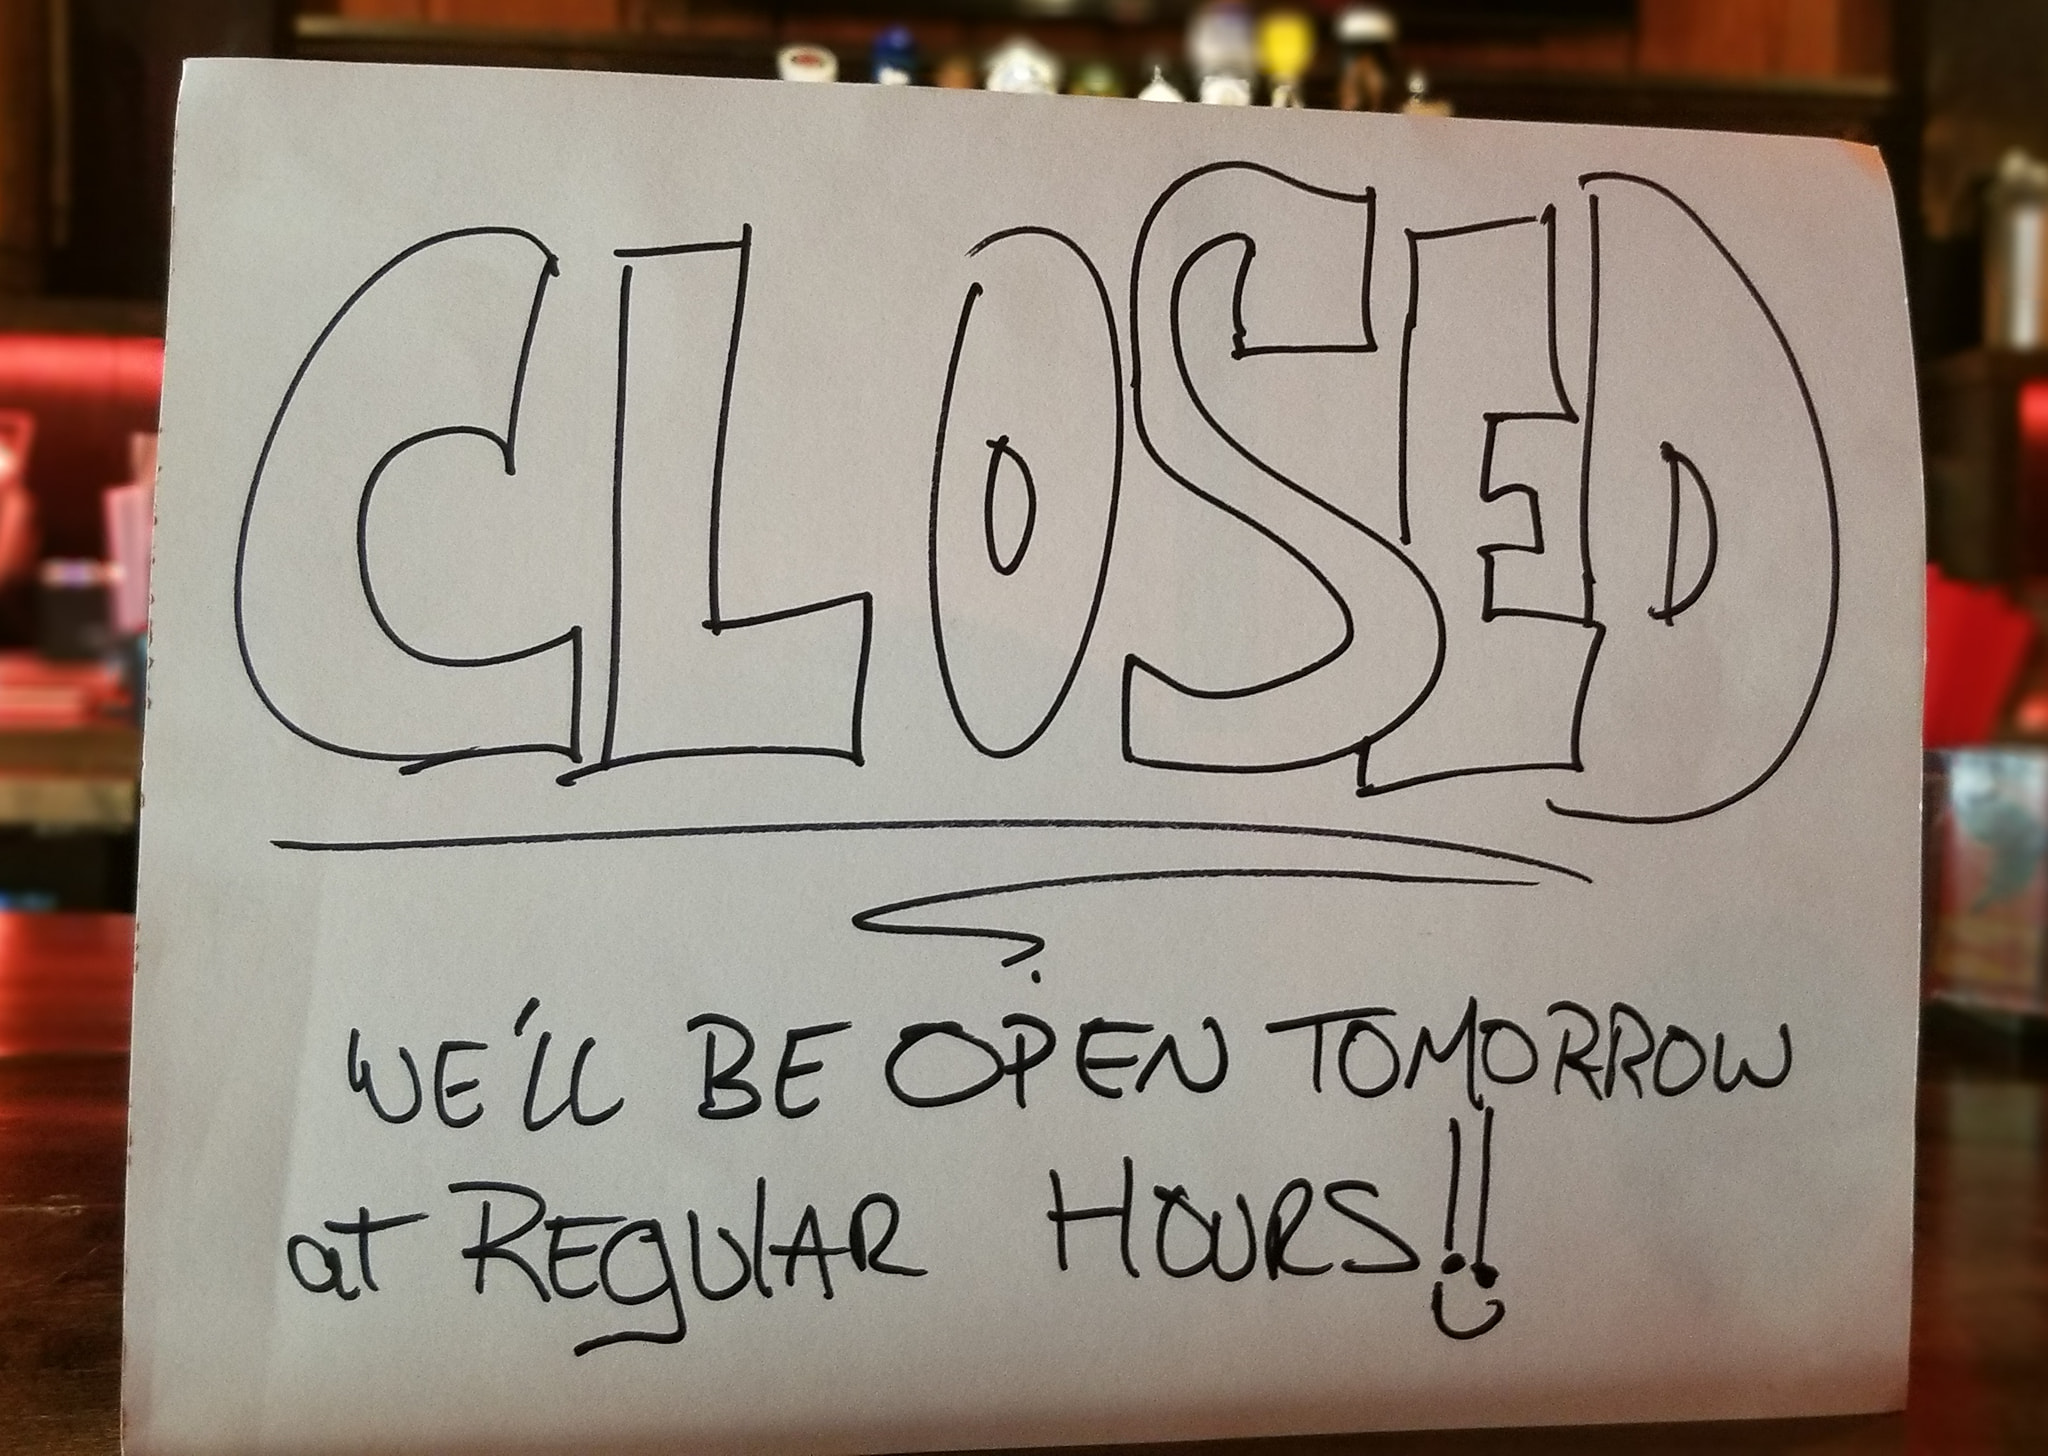 CLOSED
WE'LL BE OPEN TOMORROW
at REgULAR HOURS!!